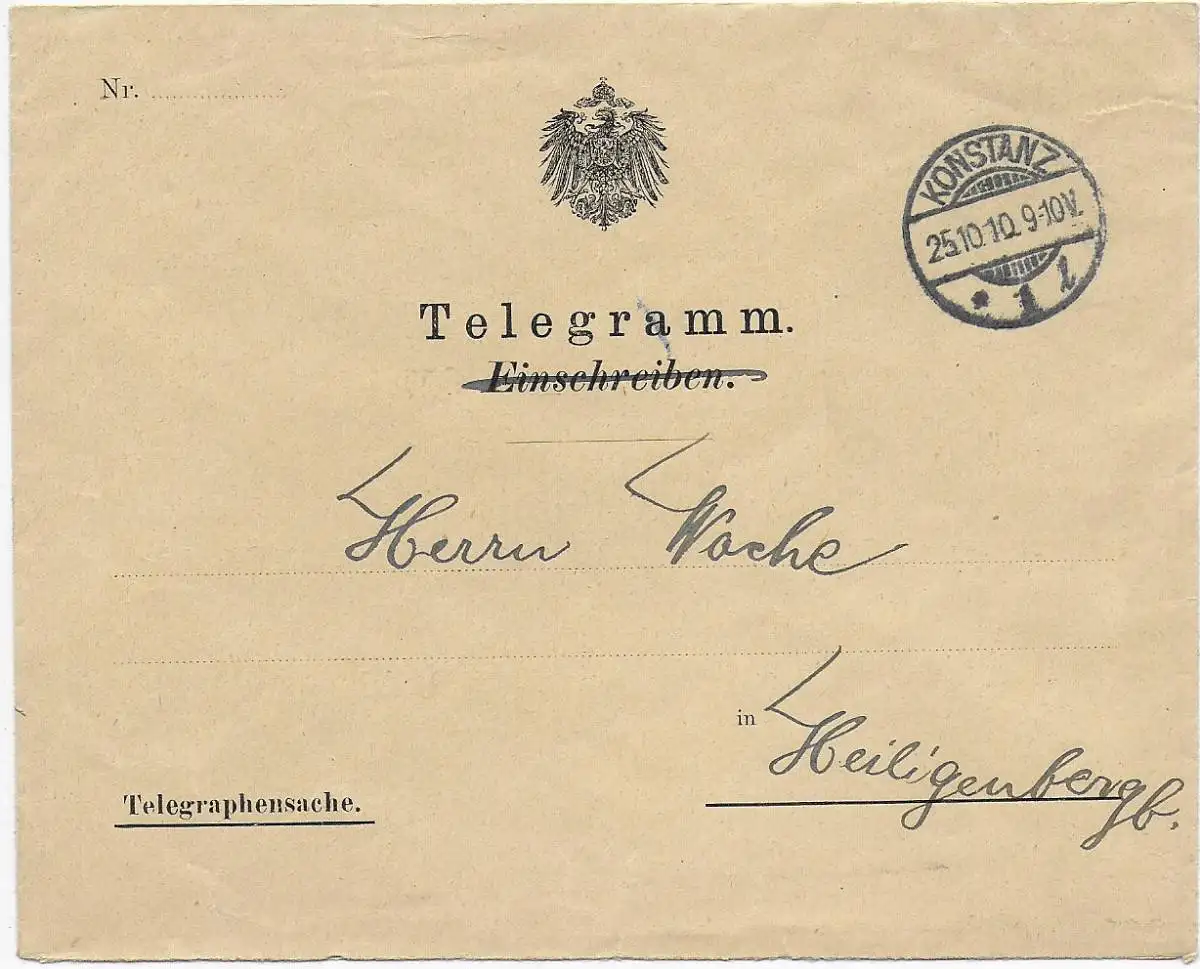 Nr.
KONSTANZ
25.10.10. 9-10V.
* 1 l
Telegramm.
Einschreiben.
Herrn Woche
in Heiligenberg
Telegraphensache.